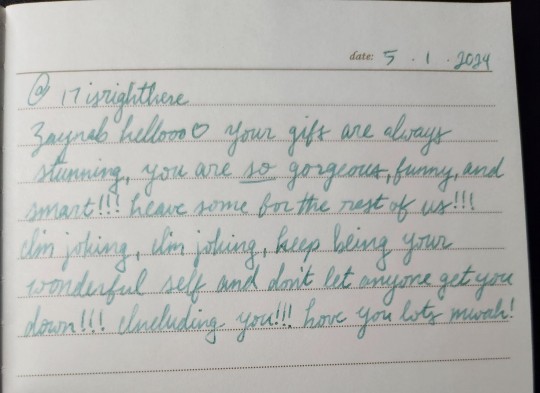 date: 5 . 1 . 2024
@ 17 isrighthere
Zaynab hellooo♡ your gifs are always
stunning, you are so gorgeous, funny, and
smart!!! Leave some for the rest of us!!!
I'm joking, I'm joking, keep being your
wonderful self and don't let anyone get you
down!!! Including you!!! Love you lots mwah!